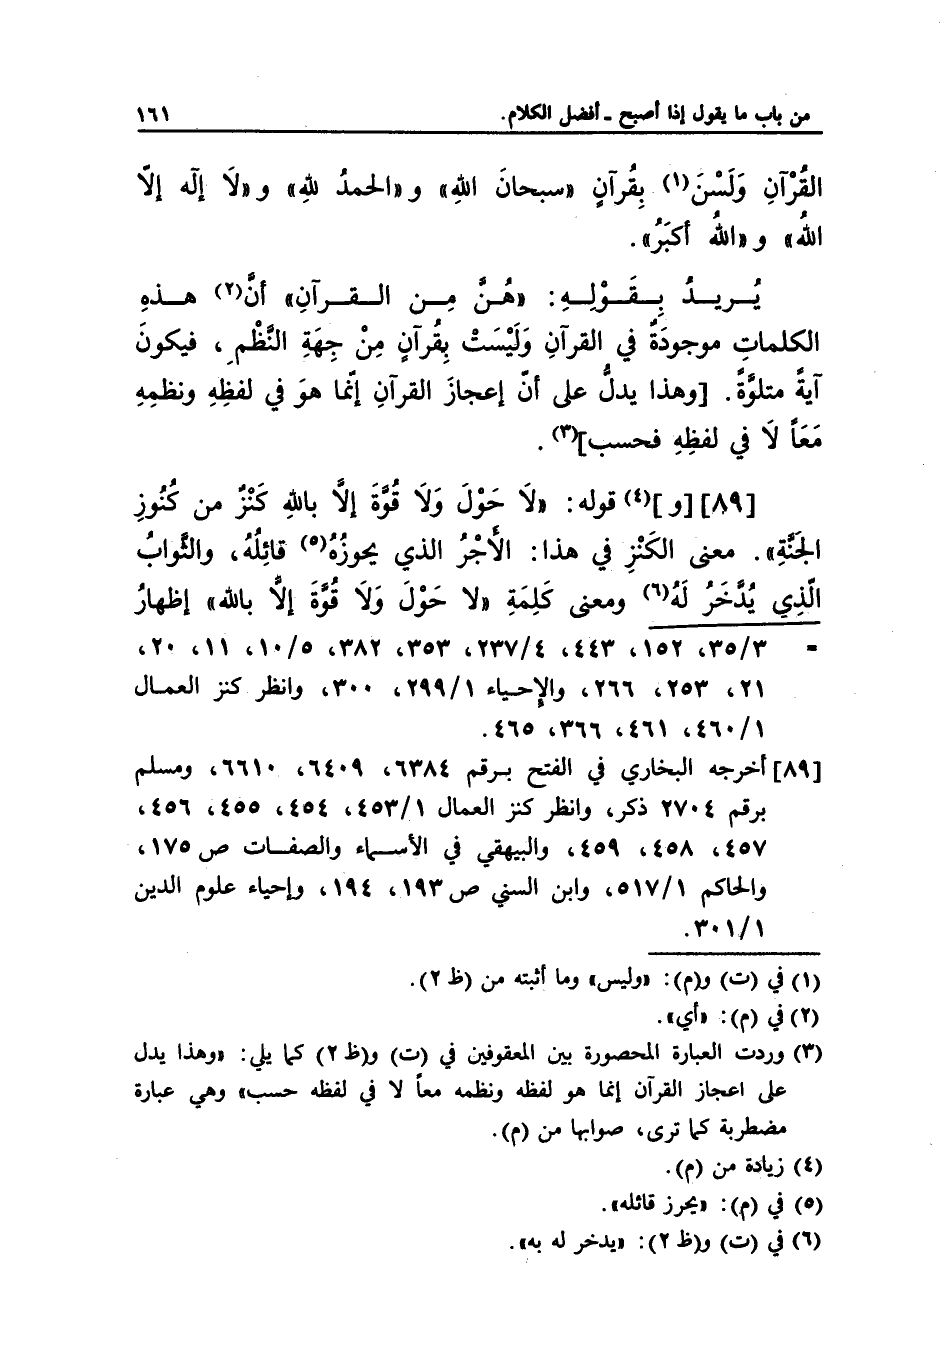 من باب ما يقول إذا أصبح - أفضل الكلام. ١٦١
القُرْآنِ وَلَسْنَ(١) بِقُرآنٍ «سبحانَ اللهِ» و«الحمدُ للهِ» و«لَا إلٰه إلّا
اللهُ» و«اللهُ أكبَرُ».
يُريدُ بِقَوْلِهِ: «هُنَّ مِن القرآنِ» أنَّ(٢) هذهِ
الكلماتِ موجودَةٌ في القرآنِ وَلَيْسَتْ بِقُرآنٍ مِنْ جِهَةِ النَّظْمِ، فيكونَ
آيةً متلوَّةً. [وهذا يدلُّ على أنّ إعجازَ القرآنِ إنّما هوَ في لفظِهِ ونظمِهِ
مَعَاً لَا في لفظِهِ فحسب](٣).
[٨٩][و](٤) قوله: «لَا حَوْلَ وَلَا قُوَّةَ إلَّا باللهِ كَنْزٌ من كُنُوزِ
الجَنَّةِ». معنى الكَنْزِ في هذا: الأَجْرُ الذي يحوزُهُ(٥) قائِلُهُ، والثَّوابُ
الّذِي يُدَّخَرُ لَهُ(٦) ومعنى كَلِمَةِ «لا حَوْلَ وَلَا قُوَّةَ إلاَّ بالله» إظهارُ
= ٣٥/٣، ١٥٢، ٤٤٣، ٢٣٧/٤، ٣٥٣، ٣٨٢، ١٠/٥، ١١، ٢٠،
٢١، ٢٥٣، ٢٦٦، والإحياء ٢٩٩/١، ٣٠٠، وانظر كنز العمال
٤٦٠/١، ٤٦١، ٣٦٦، ٤٦٥.
[٨٩] أخرجه البخاري في الفتح برقم ٦٣٨٤، ٦٤٠٩، ٦٦١٠، ومسلم
برقم ٢٧٠٤ ذكر، وانظر كنز العمال ٤٥٣/١، ٤٥٤، ٤٥٥، ٤٥٦،
٤٥٧، ٤٥٨، ٤٥٩، والبيهقي في الأسماء والصفات ص ١٧٥،
والحاكم ٥١٧/١، وابن السني ص ١٩٣، ١٩٤، وإحياء علوم الدين
٣٠١/١.
(١) في (ت) و(م): «وليس» وما أثبته من (ظ ٢).
(٢) في (م): «أي».
(٣) وردت العبارة المحصورة بين المعقوفين في (ت) و(ظ ٢) كما يلي: «وهذا يدل
على اعجاز القرآن إنما هو لفظه ونظمه معاً لا في لفظه حسب» وهي عبارة
مضطربة كما ترى، صوابها من (م).
(٤) زيادة من (م).
(٥) في (م): «يحرز قائله».
(٦) في (ت) و(ظ ٢): «يدخر له به».